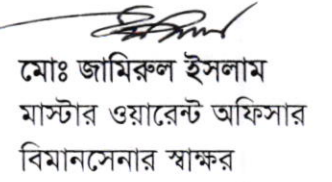 মোঃ জামিরুল ইসলাম
মাস্টার ওয়ারেন্ট অফিসার
বিমানসেনার স্বাক্ষর